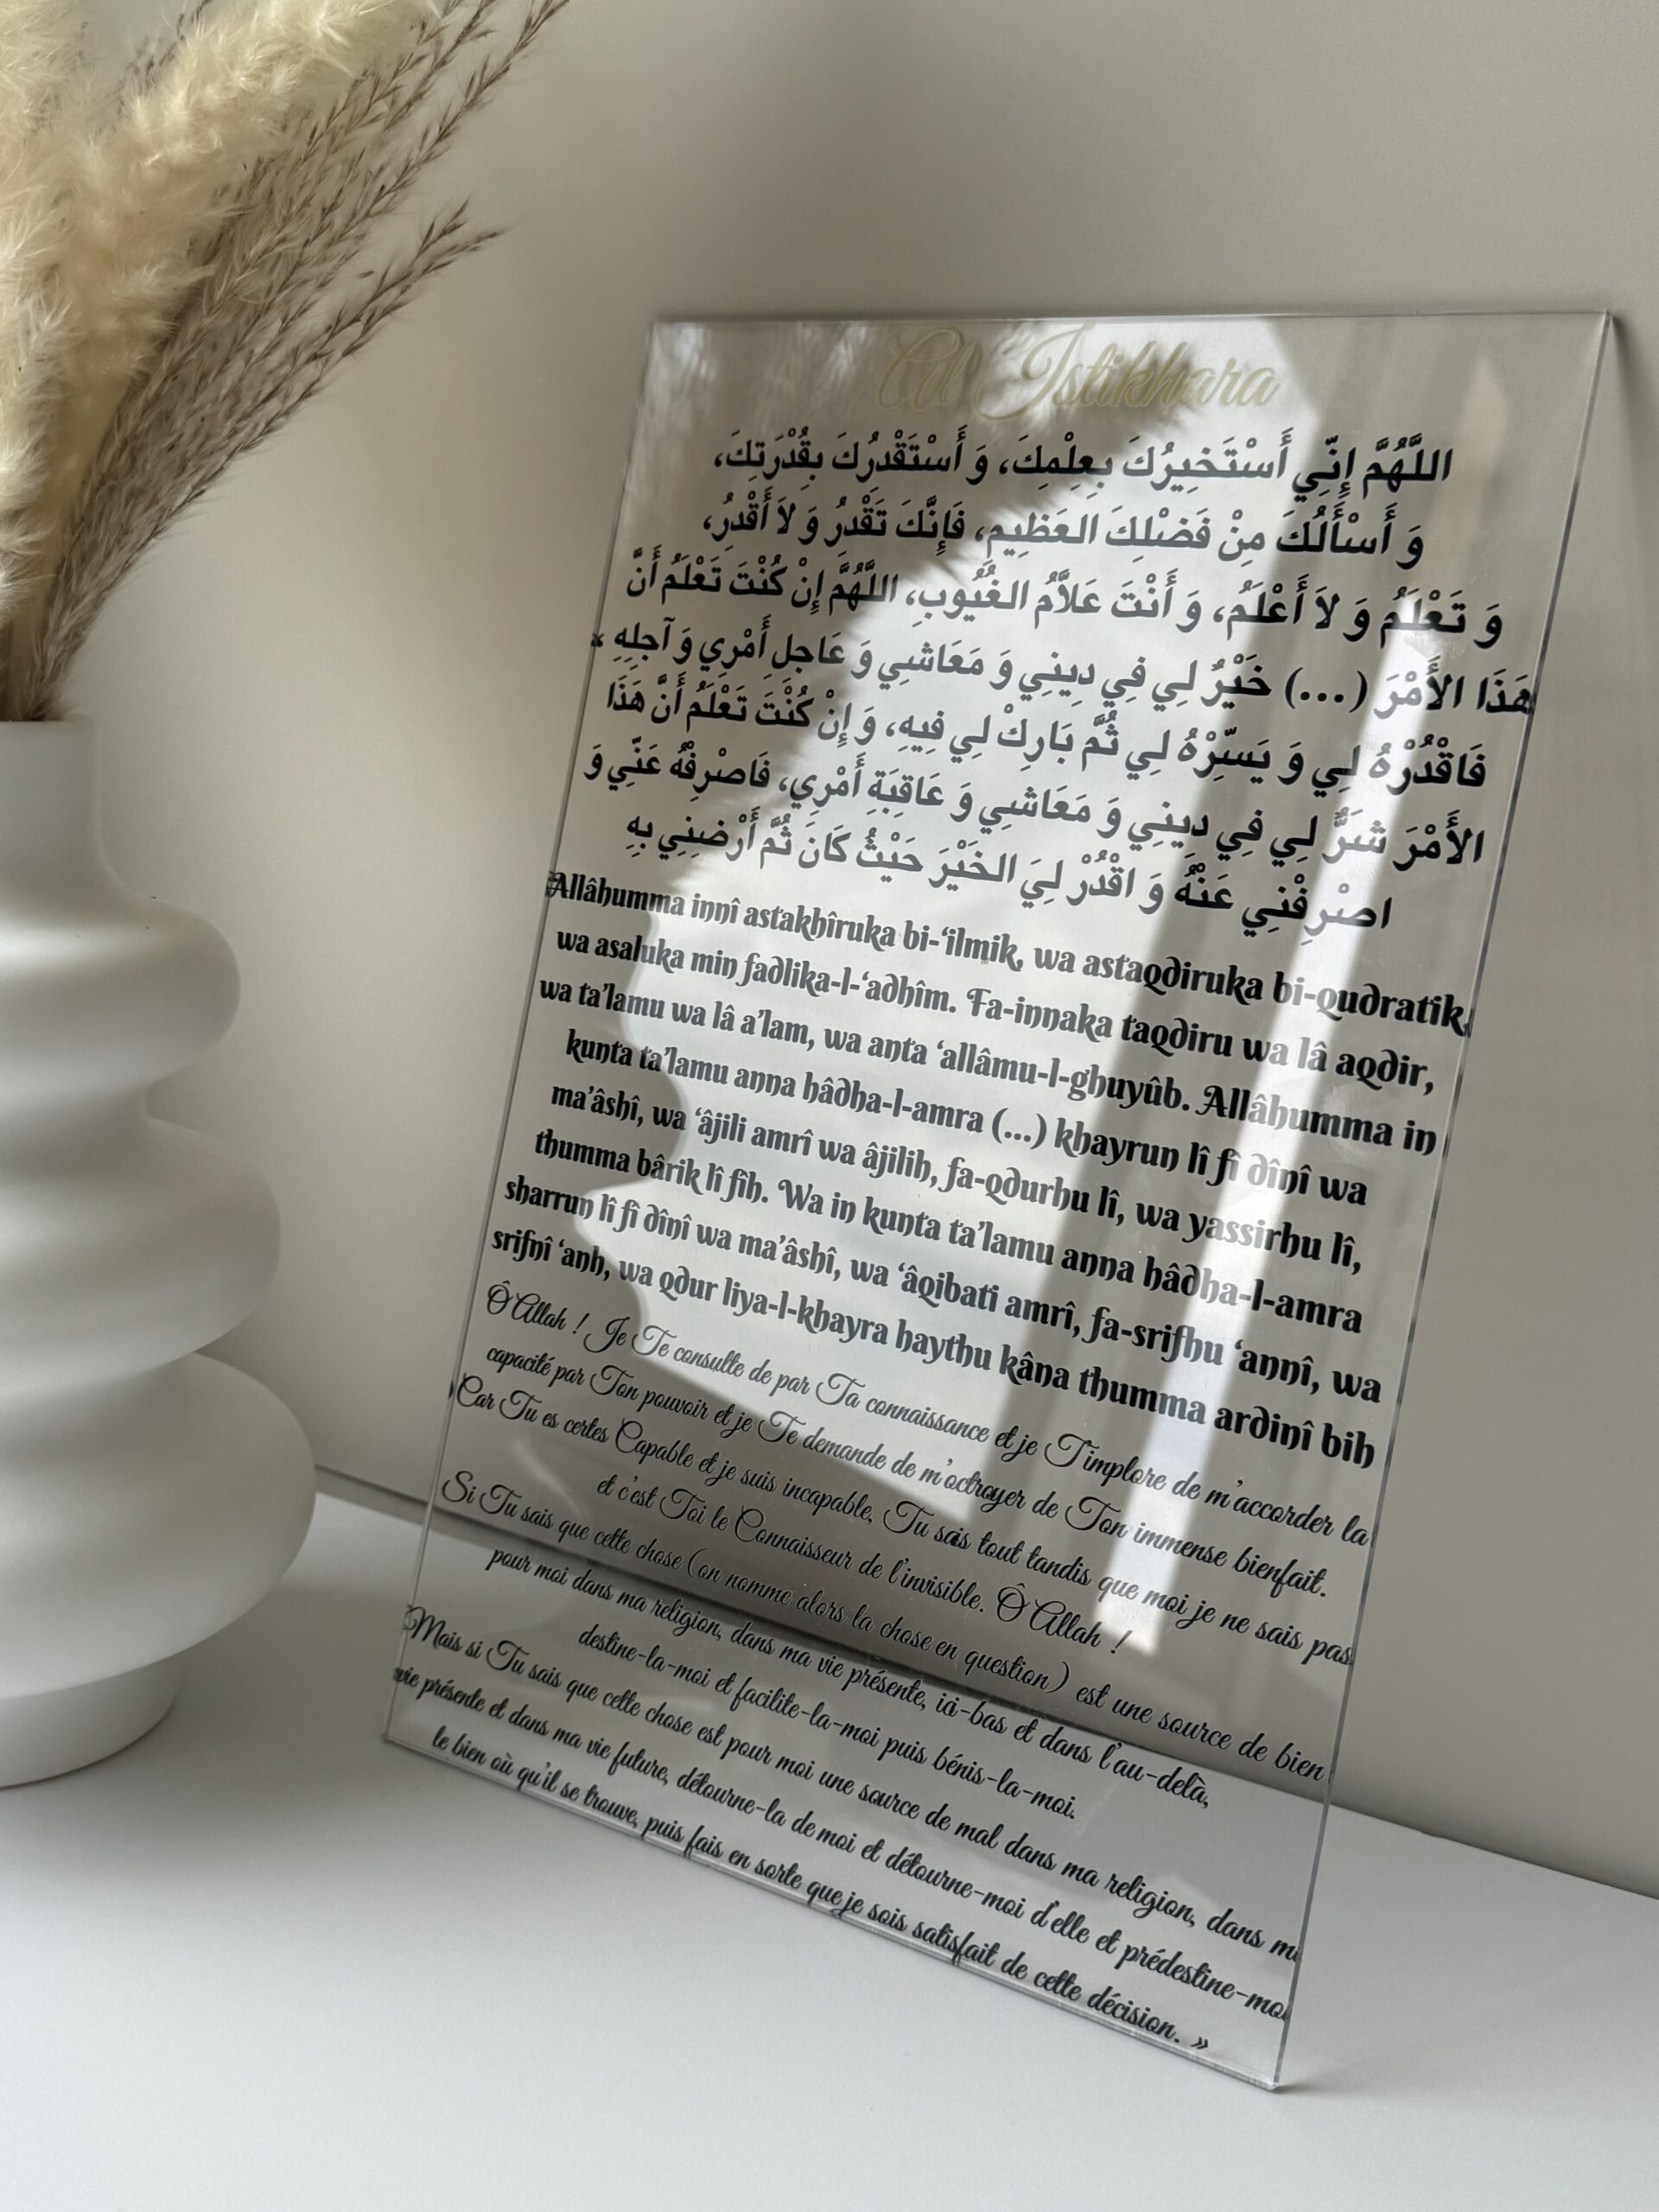 Al Istikhara
اللَّهُمَّ إِنِّي أَسْتَخِيرُكَ بِعِلْمِكَ، وَ أَسْتَقْدِرُكَ بِقُدْرَتِكَ،
وَ أَسْأَلُكَ مِنْ فَضْلِكَ العَظِيمِ، فَإِنَّكَ تَقْدِرُ وَ لاَ أَقْدِرُ،
وَ تَعْلَمُ وَ لاَ أَعْلَمُ، وَ أَنْتَ عَلاَّمُ الغُيُوبِ، اللَّهُمَّ إِنْ كُنْتَ تَعْلَمُ أَنَّ
هَذَا الأَمْرَ (...) خَيْرٌ لِي فِي دِينِي وَ مَعَاشِي وَ عَاجِلِ أَمْرِي وَ آجِلِهِ،
فَاقْدُرْهُ لِي وَ يَسِّرْهُ لِي ثُمَّ بَارِكْ لِي فِيهِ، وَ إِنْ كُنْتَ تَعْلَمُ أَنَّ هَذَا
الأَمْرَ شَرٌّ لِي فِي دِينِي وَ مَعَاشِي وَ عَاقِبَةِ أَمْرِي، فَاصْرِفْهُ عَنِّي وَ
اصْرِفْنِي عَنْهُ وَ اقْدُرْ لِيَ الخَيْرَ حَيْثُ كَانَ ثُمَّ أَرْضِنِي بِهِ
Allâhumma innî astakhîruka bi-‘ilmik, wa astaqdiruka bi-qudratik,
wa asaluka min fadlika-l-‘adhîm. Fa-innaka taqdiru wa lâ aqdir,
wa ta’lamu wa lâ a’lam, wa anta ‘allâmu-l-ghuyûb. Allâhumma in
kunta ta’lamu anna hâdha-l-amra (...) khayrun lî fî dînî wa
ma’âshî, wa ‘âjili amrî wa âjilih, fa-qdurhu lî, wa yassirhu lî,
thumma bârik lî fîh. Wa in kunta ta’lamu anna hâdha-l-amra
sharrun lî fî dînî wa ma’âshî, wa ‘âqibati amrî, fa-srifhu ‘annî, wa
srifnî ‘anh, wa qdur liya-l-khayra haythu kâna thumma ardinî bih
Ô Allah ! Je Te consulte de par Ta connaissance et je T'implore de m'accorder la
capacité par Ton pouvoir et je Te demande de m'octroyer de Ton immense bienfait.
Car Tu es certes Capable et je suis incapable, Tu sais tout tandis que moi je ne sais pas
et c'est Toi le Connaisseur de l'invisible. Ô Allah !
Si Tu sais que cette chose (on nomme alors la chose en question) est une source de bien
pour moi dans ma religion, dans ma vie présente, ici-bas et dans l'au-delà,
destine-la-moi et facilite-la-moi puis bénis-la-moi.
Mais si Tu sais que cette chose est pour moi une source de mal dans ma religion, dans ma
vie présente et dans ma vie future, détourne-la de moi et détourne-moi d'elle et prédestine-moi
le bien où qu'il se trouve, puis fais en sorte que je sois satisfait de cette décision. »